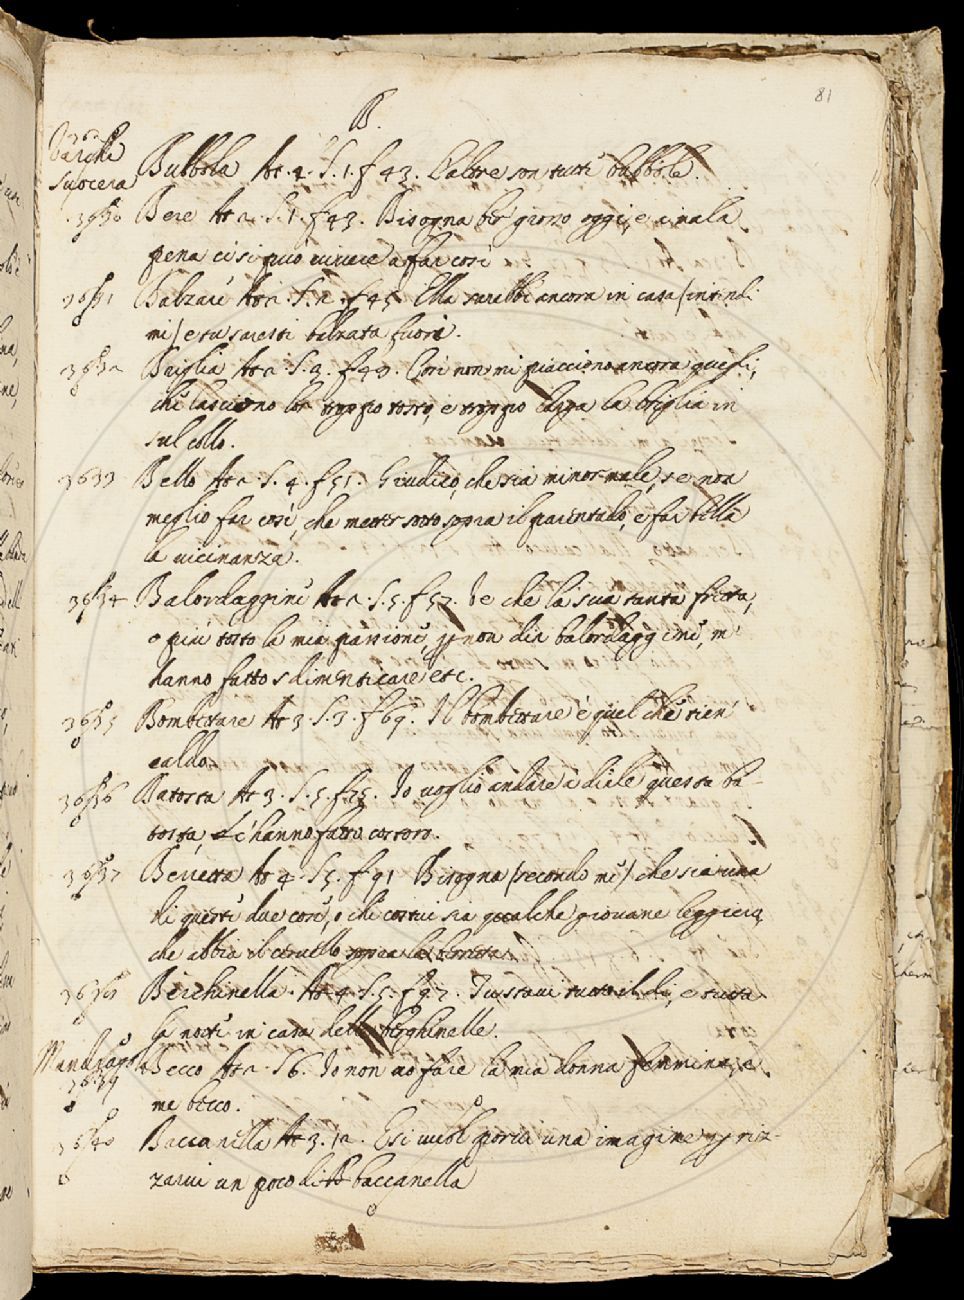 81
B.
Varchi
Suocera Bubbola At. 2. S. 1. f 43. L'altre son tutti bubbole.
Bere At 2. S. 1. f 43. Bisogna ber grosso oggi, e a mala
pena ci si può vivere a far così
3631 Balzare At 2. S. 2. f 45. Ella sarebbe ancora in casa (intendi
mi) e tu saresti balzata fuori.
3632 Briglia At 2. S. 3. f 49. Così non mi piacciono ancora quegli,
che lasciono lor
la briglia in
sul collo.
3633 Bello At 2. S. 4. f 51. Giudico, che sia minor male, se non
meglio far così, che metter sotto sopra il parentado, e far bella
la vicinanza.
3634 Balordaggini At 2. S. 5. f 57. Se che la sua tanta fretta,
o più tosto la mia passione, p non dir balordaggine, m'
hanno fatto sdimenticare etc.
3635 Bomberare At 3. S. 3. f 69. Il bomberare è quel che tien'
caldo.
3636 Batosta At 3. S. 5. f 75. Io voglio andare a dirle questa ba-
tosta, che c'hanno fatto costoro.
3637 Berretta At 4. S 5. f 91 Bisogna (secondo me) che sia una
di queste due cose, o che costui sia qualche giovane leggieri,
che abbia il cervello sopra la berretta.
3638 Berghinella. At 4. S. 5. f 97. Tu stavi tutto il dì, e tutta
la notte in casa delle berghinelle.
Mandrag.
3639 Becco At 2. S 6. Io non vo fare la mia donna femmina, e
me becco.
3640 Baccanella At 3. 12. E si vuol porvi una imagine p riz-
zarvi un poco di baccanella